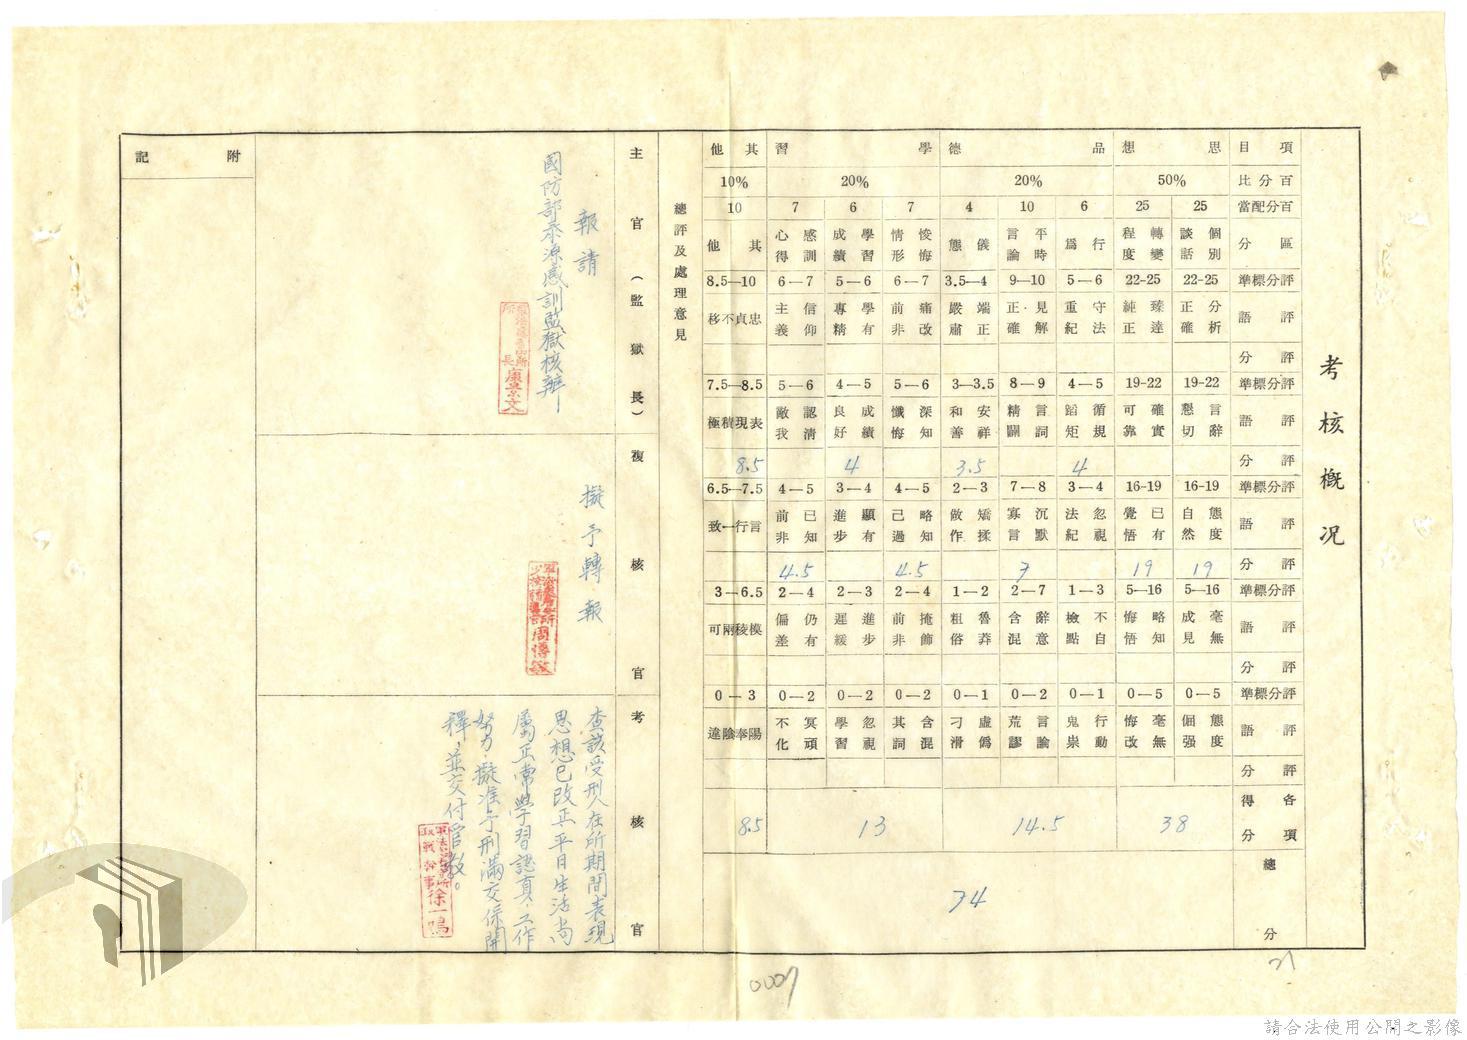 考核概況
項目 思想 品德 學習 其他
百分比 50% 20% 20% 10%
百分配當 25 25 6 10 4 7 6 7 10
區分 個別談話 轉變程度 行為 平時言論 儀態 悛悔情形 學習成績 感訓心得 其他
評分標準 22-25 22-25 5—6 9—10 3.5—4 6—7 5—6 6—7 8.5—10
評語 分析正確 臻達純正 守法重紀 見解正確 端正嚴肅 痛改前非 學有專精 信仰主義 忠貞不移
評分
評分標準 19-22 19-22 4—5 8—9 3—3.5 5—6 4—5 5—6 7.5—8.5
評語 言辭懇切 確實可靠 循規蹈矩 言詞精闢 安祥和善 深知懺悔 成績良好 認清敵我 表現積極
評分 4 3.5 4 8.5
評分標準 16-19 16-19 3—4 7—8 2—3 4—5 3—4 4—5 6.5—7.5
評語 態度自然 已有覺悟 忽視法紀 沉默寡言 矯揉做作 略知己過 顯有進步 已知前非 言行一致
評分 19 19 7 4.5 4.5
評分標準 5—16 5—16 1—3 2—7 1—2 2—4 2—3 2—4 3—6.5
評語 毫無成見 略知悔悟 不自檢點 辭意含混 魯莽粗俗 掩飾前非 進步遲緩 仍有偏差 模稜兩可
評分
評分標準 0—5 0—5 0—1 0—2 0—1 0—2 0—2 0—2 0—3
評語 態度倔强 毫無悔改 行動鬼祟 言論荒謬 虛僞刁滑 含混其詞 忽視學習 冥頑不化 陽奉陰違
評分
各項得分 38 14.5 13 8.5
總分 74
總評及處理意見
主官（監獄長）
報請
國防部泰源感訓監獄核辦
複核官
擬予轉報
考核官
查該受刑人在所期間表現
思想已改正、平日生活尚
屬正常學習認真、工作
努力、擬准予刑滿交保開
釋、並交付管教。
徐一鳴
附記
0007
21
請合法使用公開之影像